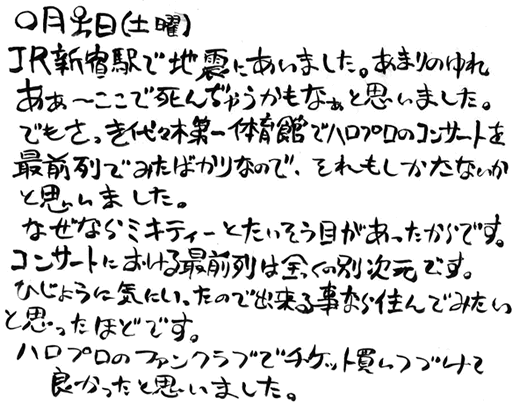 〇月〇日(土曜)
JR新宿駅で地震にあいました。あまりのゆれ
あぁ〜ここで死んぢゃうかもなぁと思いました。
でもさっき代々木第一体育館でハロプロのコンサートを
最前列でみたばかりなので、それもしかたないか
と思いました。
なぜならミキティーとたいそう目があったからです。
コンサートにおける最前列は全くの別次元です。
ひじょうに気にいったので出来る事なら住んでみたい
と思ったほどです。
ハロプロのファンクラブでチケット買いつづけて
良かったと思いました。